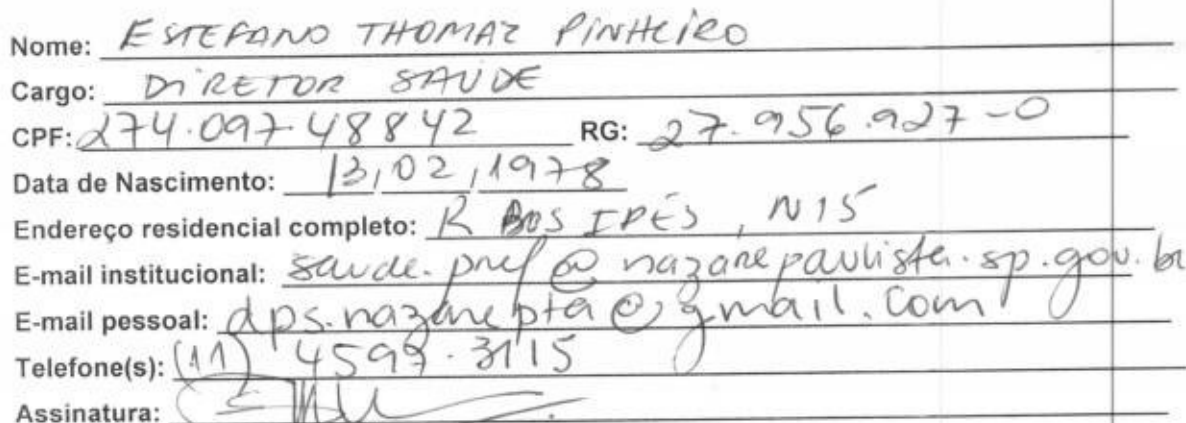 Nome: ESTEFANO THOMAZ PINHEIRO
Cargo: DIRETOR SAUDE
CPF: 274.097.48842 RG: 27.956.927-0
Data de Nascimento: 13,02,1978
Endereço residencial completo: R DOS IPÊS, N15
E-mail institucional: saude.pref@nazarepaulista.sp.gov.br
E-mail pessoal: dps.nazarepta@gmail.com
Telefone(s): (11) 4597-3115
Assinatura: